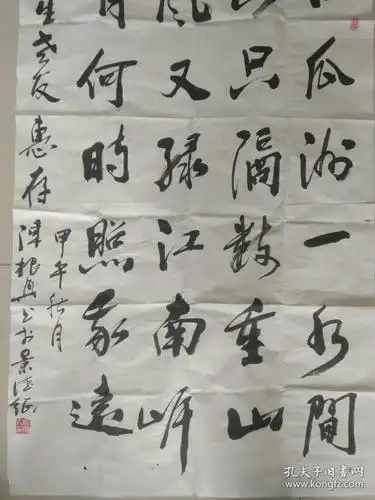 瓜洲一水間
只隔數重山
風又綠江南岸
月何時照我還
生老友惠存
甲午秋月
陳根
孔夫子旧书网
www.kongfz.com